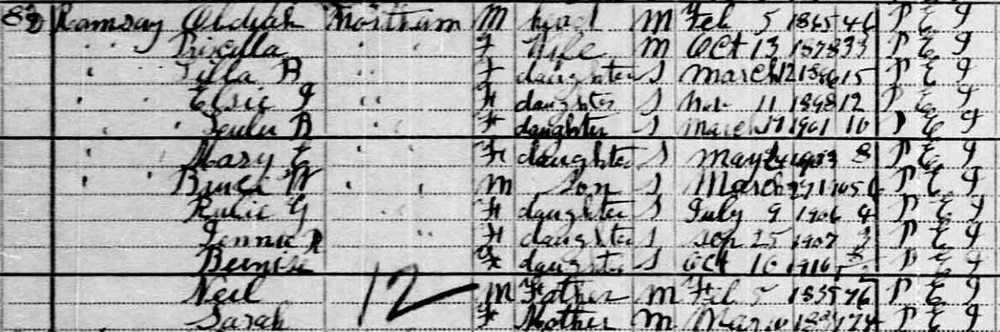 82 Ramsay Obediah Northam M head M Feb 5 1865 46 P E I
" " Priscilla " " F Wife M Oct 13 1878 33 P E I
" Tilla B " F daughter S March 12 1896 15 P E I
" Elsie " F daughter S Nov 11 1898 12 P E I
" " B " F daughter S March 1901 10 P E I
" " Mary E " F daughter S May 1903 8 P E I
" " W " " M Son S March P E I
G " F daughter S July 9 1906 4 P E I
Jennie " F daughter S Sep 25 1907 3 P E I
Bernice F daughter S Oct 10 P E I
Neil 12 M Father M Feb 5 1835 76 P E I
Sarah F Mother M 74 P E I